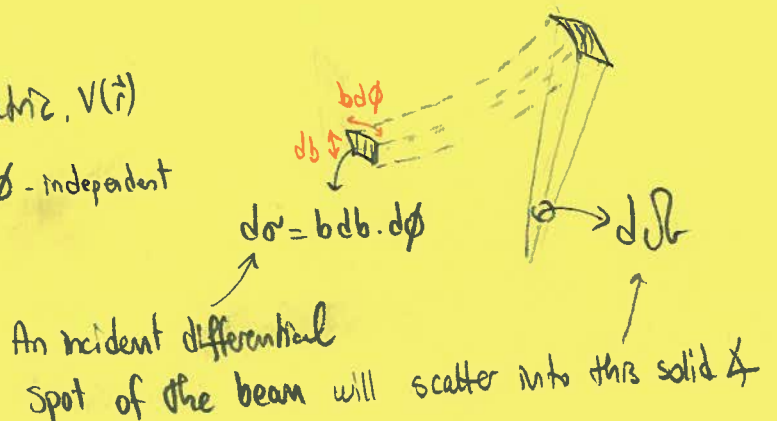 V(r⃗)
bdϕ
db
ϕ - independent
dσ = b db . dϕ
dΩ
An incident differential
spot of the beam will scatter into this solid ∡